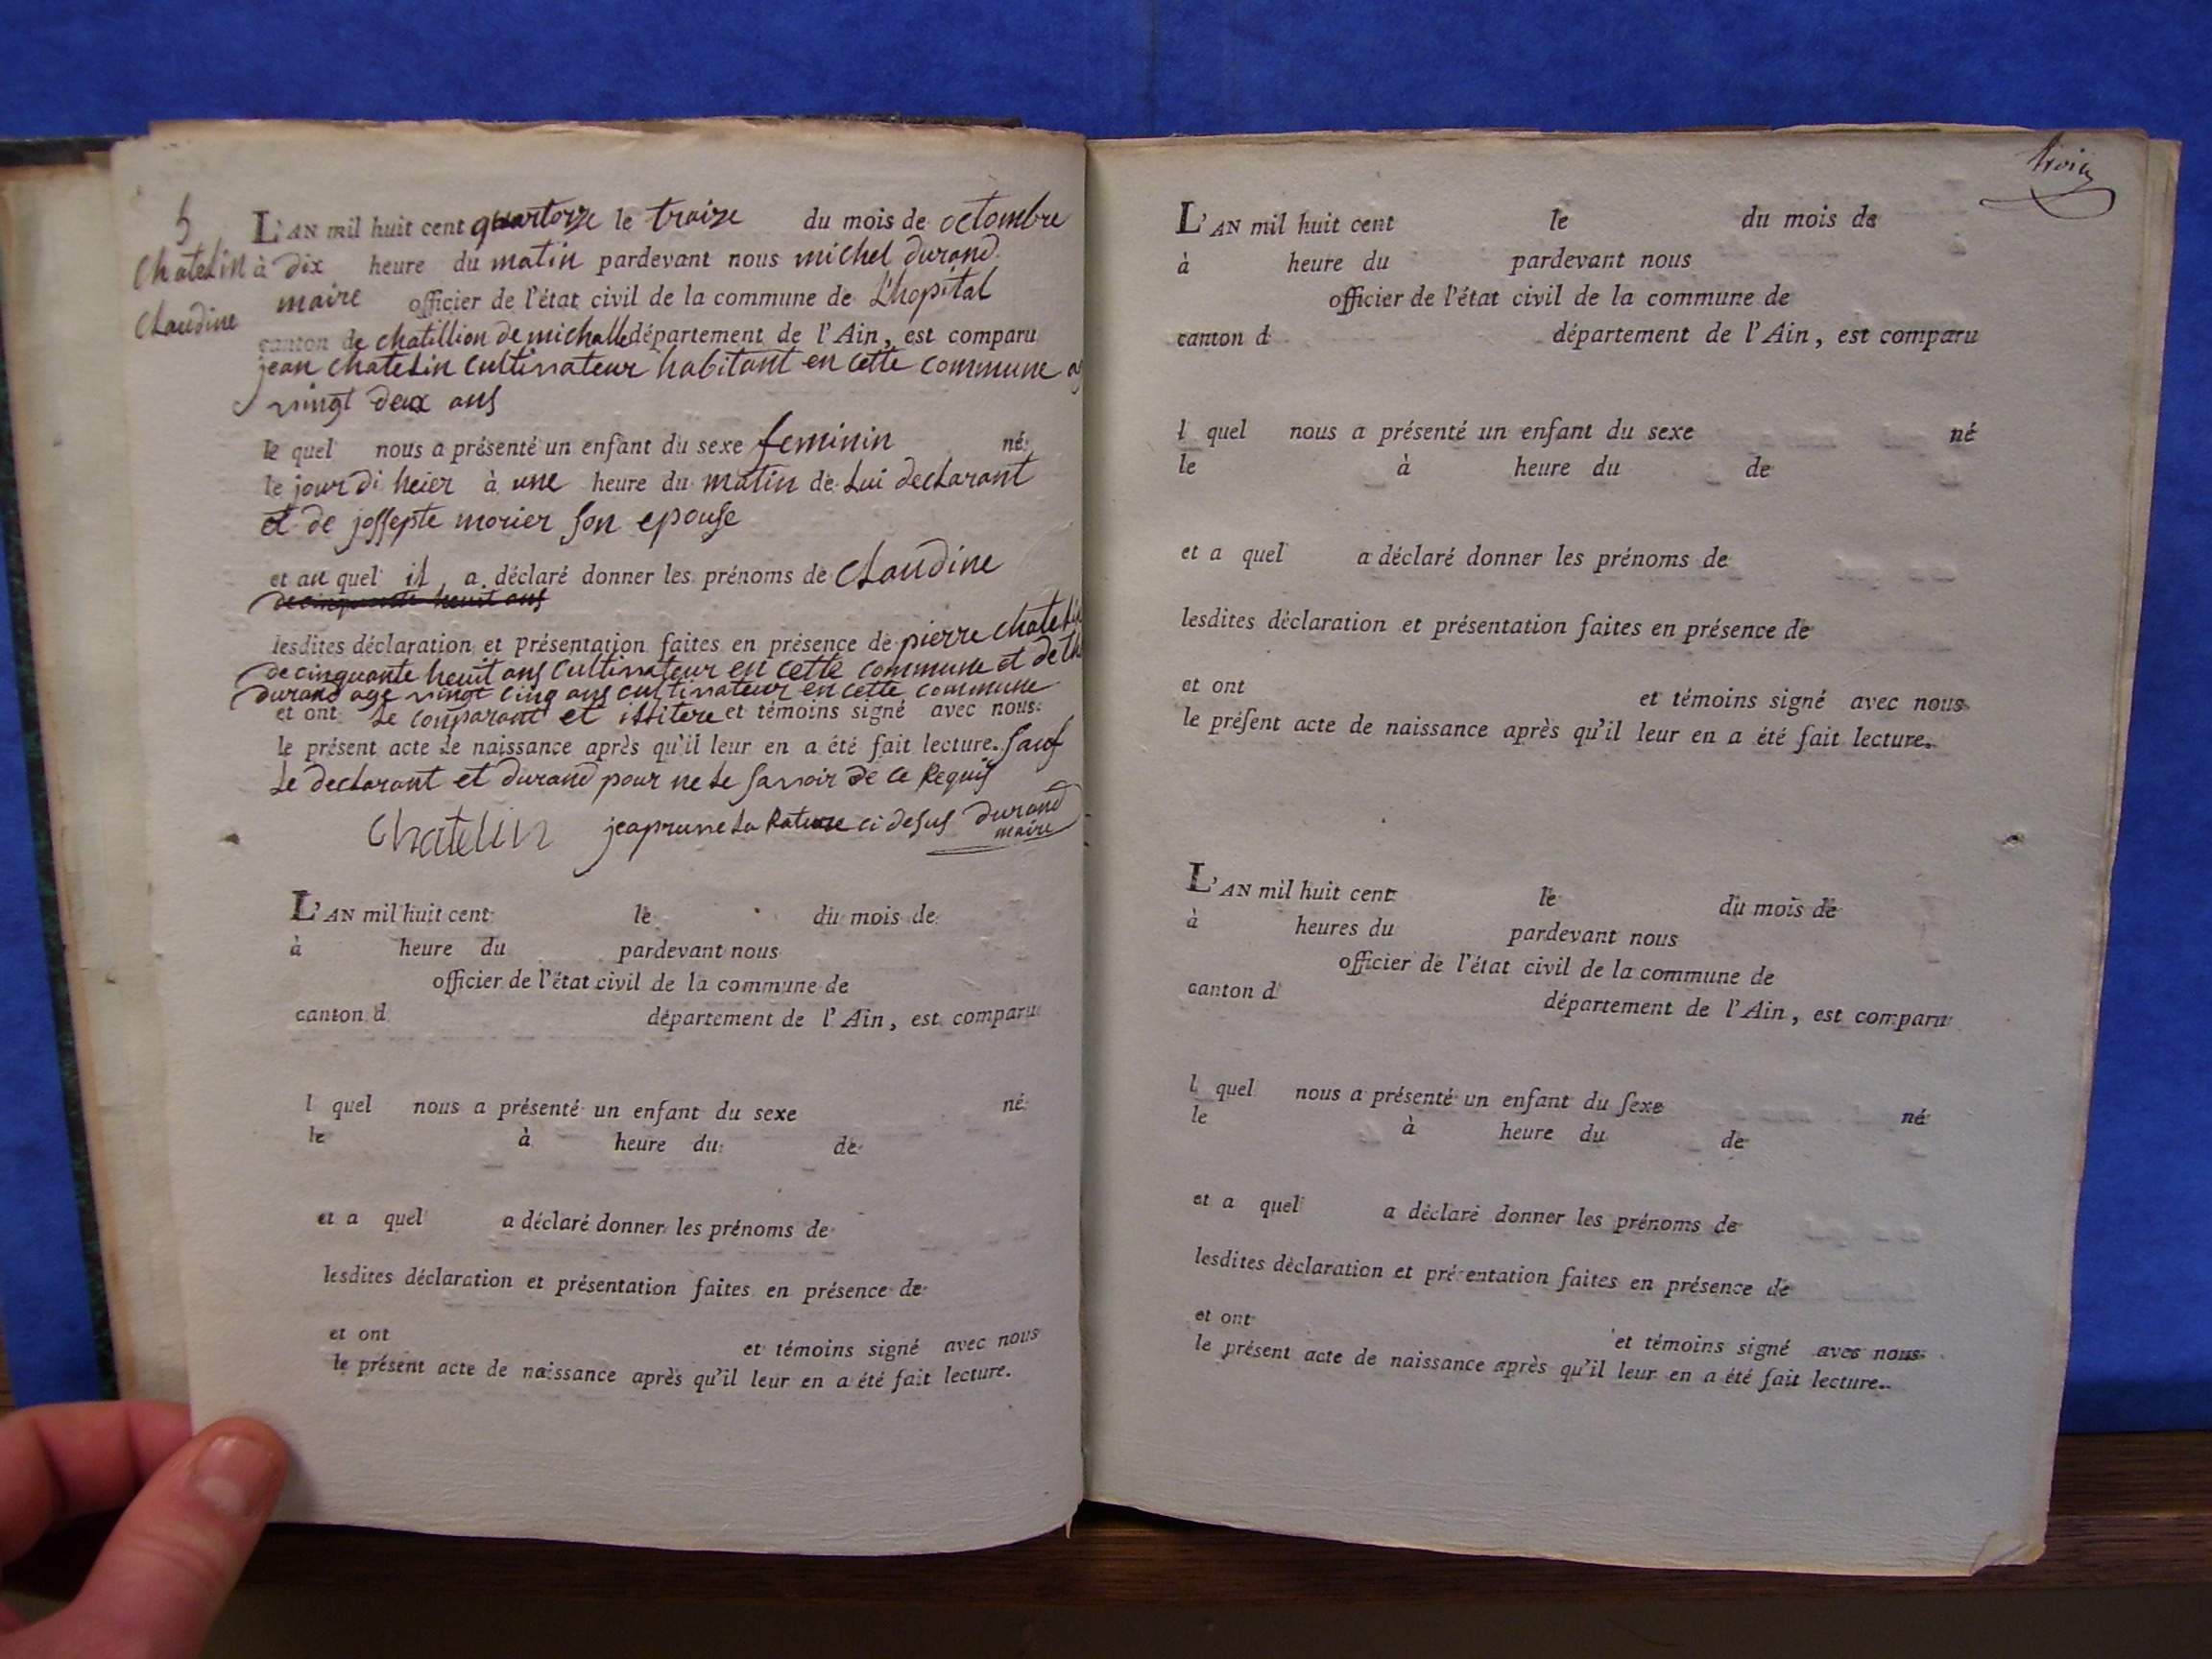 5
Chatelin
Claudine
L'AN mil huit cent quartorze le traize du mois de octombre
à dix heure du matin pardevant nous michel durand
maire officier de l'état civil de la commune de L'hopital
canton de chatillion de michalle département de l'Ain, est comparu
jean chatelin cultivateur habitant en cette commune
vingt deux ans
le quel nous a présenté un enfant du sexe feminin né
le jour di heier à une heure du matin de Lui declarant
et de jossepte morier son epouse
et au quel il a déclaré donner les prénoms de Claudine
de cinquante heuit ans
lesdites déclaration et présentation faites en présence de pierre chatelin
de cinquante heuit ans cultivateur en cette commune et de
durand age vingt cinq ans cultivateur en cette commune
et ont le conparant et et témoins signé avec nous
le présent acte de naissance après qu'il leur en a été fait lecture. sauf
Le declarant et durand pour ne le savoir de ce Requis
Chatelin jeapruve la Rature ci desus durand
maire
L'AN mil huit cent le du mois de
à heure du pardevant nous
officier de l'état civil de la commune de
canton d département de l'Ain, est comparu
l quel nous a présenté un enfant du sexe né
le à heure du de
et a quel a déclaré donner les prénoms de
lesdites déclaration et présentation faites en présence de
et ont et témoins signé avec nous
le présent acte de naissance après qu'il leur en a été fait lecture.
trois
L'AN mil huit cent le du mois de
à heure du pardevant nous
officier de l'état civil de la commune de
canton d département de l'Ain, est comparu
l quel nous a présenté un enfant du sexe né
le à heure du de
et a quel a déclaré donner les prénoms de
lesdites déclaration et présentation faites en présence de
et ont et témoins signé avec nous
le préſent acte de naissance après qu'il leur en a été fait lecture.
L'AN mil huit cent le du mois de
à heures du pardevant nous
officier de l'état civil de la commune de
canton d département de l'Ain, est comparu
l quel nous a présenté un enfant du ſexe né
le à heure du de
et a quel a déclaré donner les prénoms de
lesdites déclaration et présentation faites en présence de
et ont et témoins signé avec nous
le présent acte de naissance après qu'il leur en a été fait lecture.